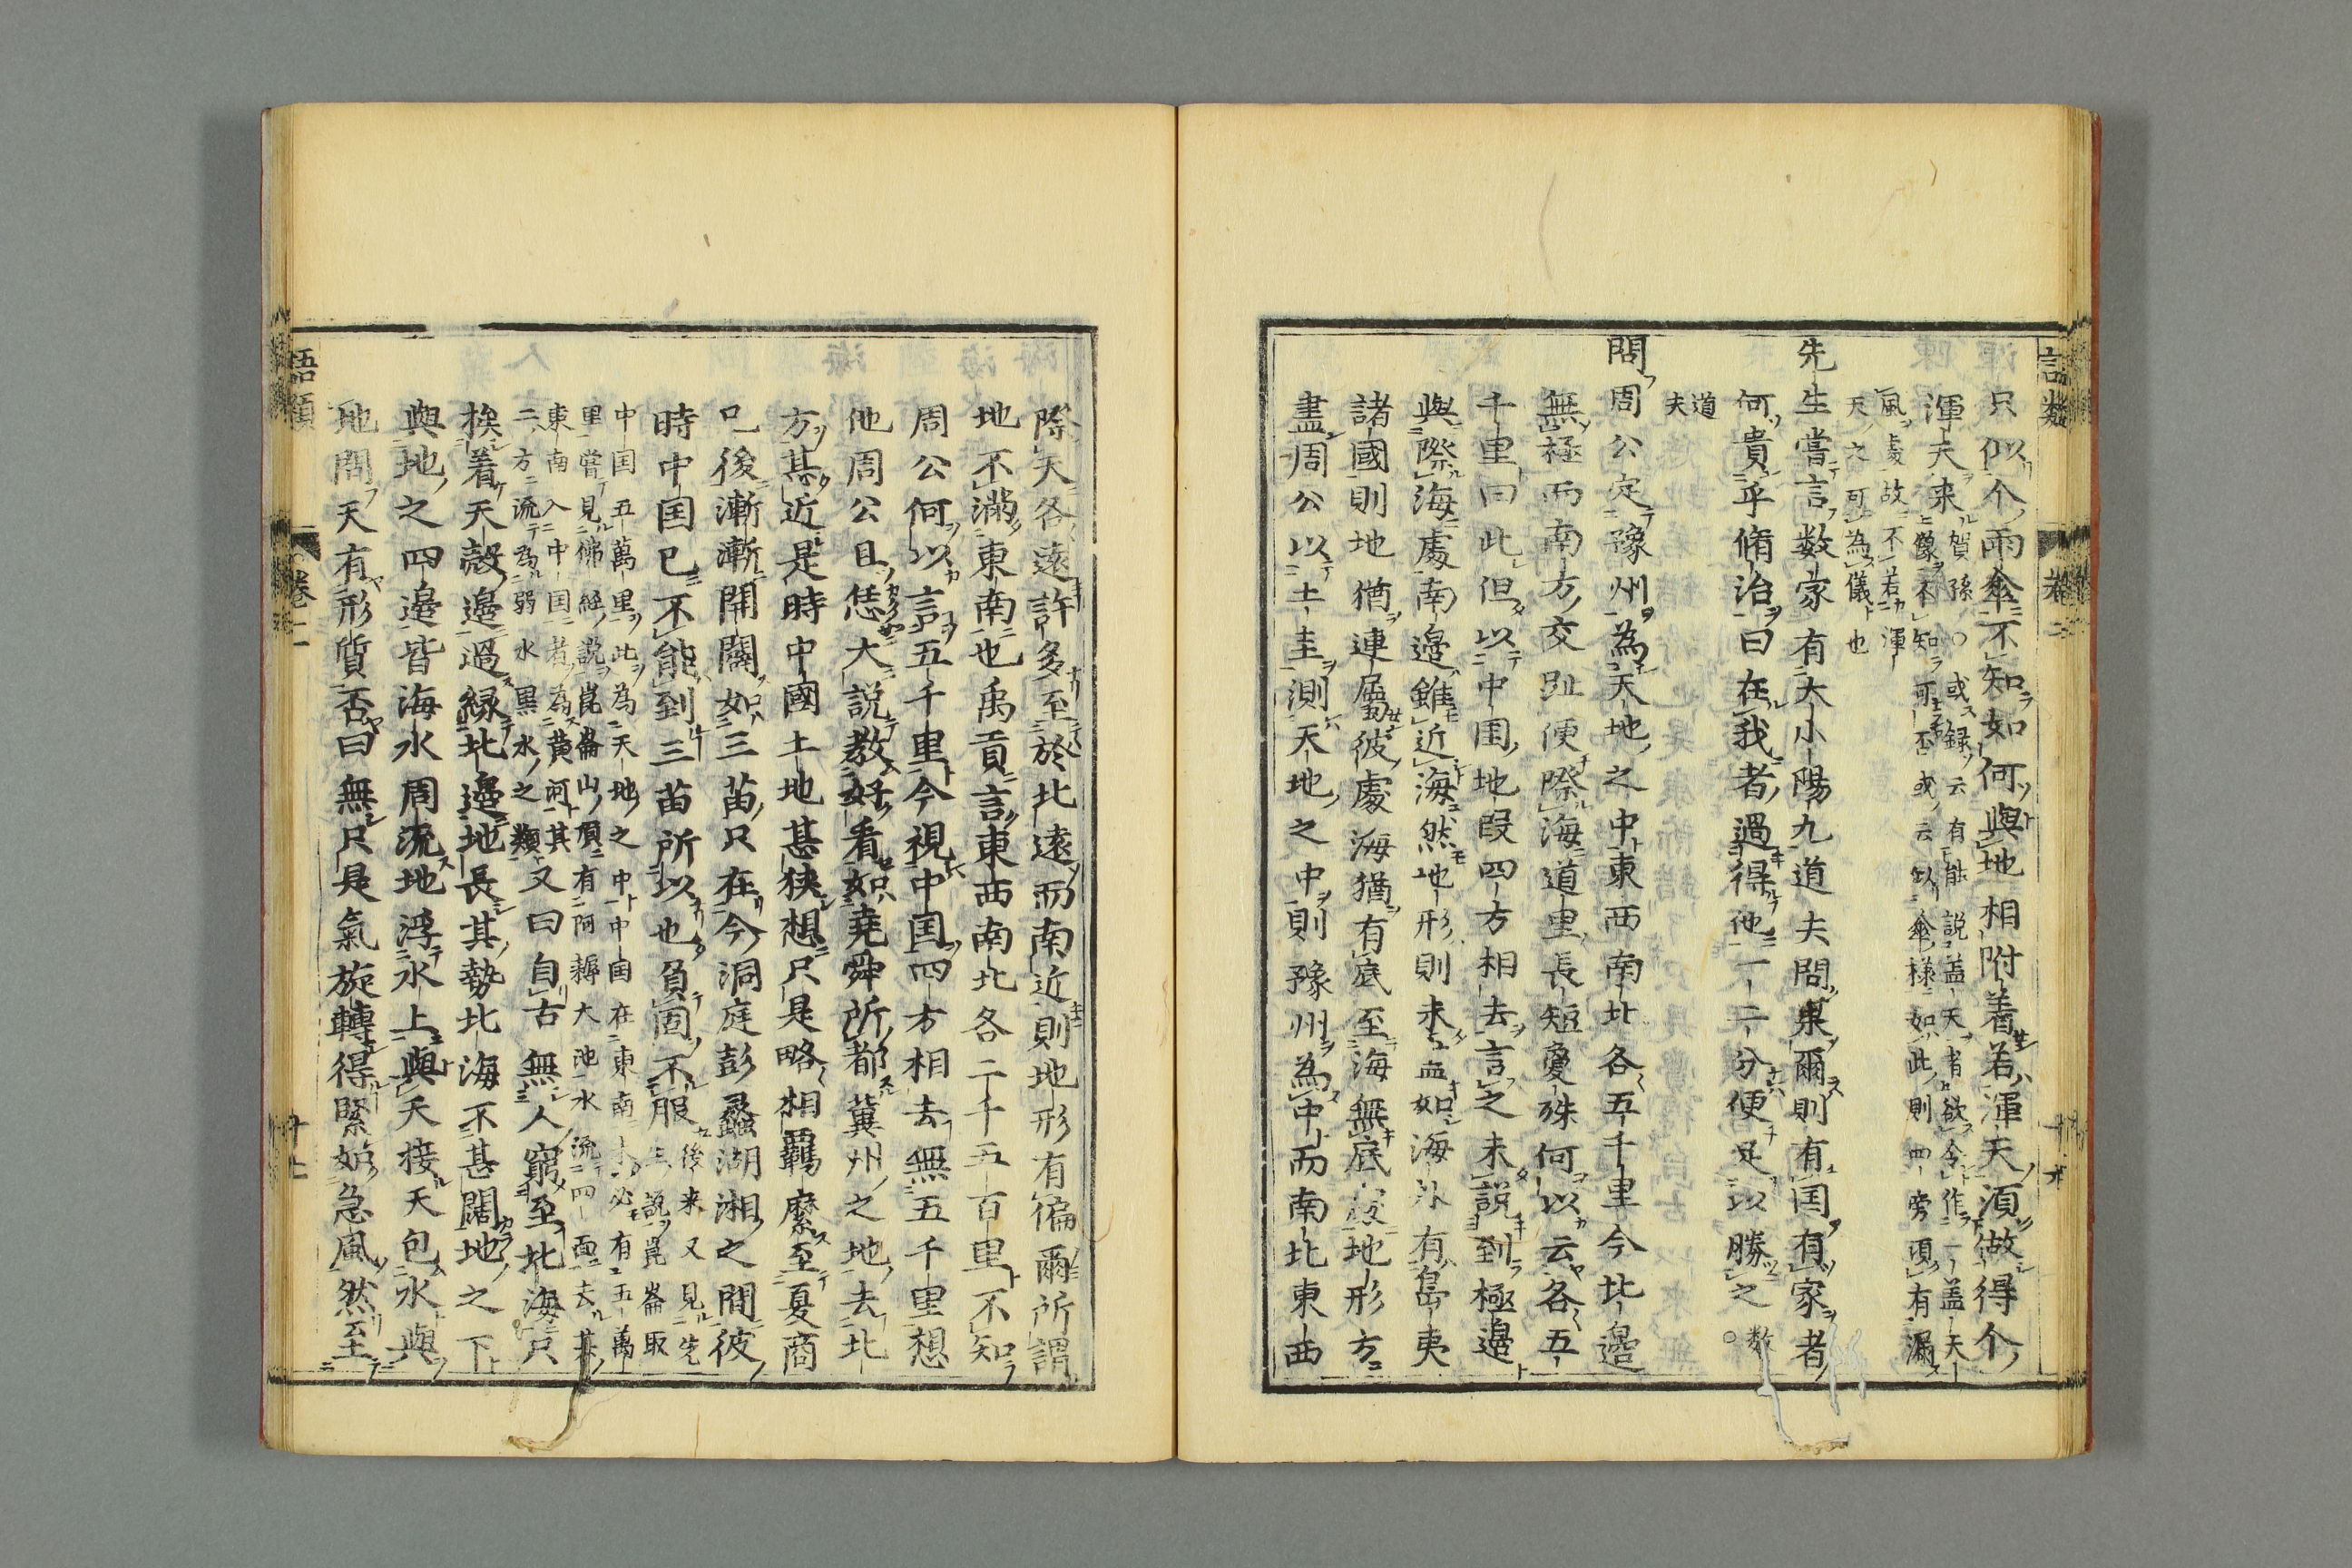 只似个雨傘不知如何與地相附着若渾天須做得个
渾天来賀孫○或録云有能説蓋天者欲令作一蓋天
儀不知可否或云似傘樣如此則四旁須有漏
風處故不若渾
天之可為儀也
先生嘗言数家有大小陽九道夫問果爾則有国有家者
何貴乎脩治曰在我者過得他一二分便足以勝之数
○
道
夫
問周公定豫州為天地之中東西南北各五千里今北邉
無極而南方交趾便際海道里長短夐殊何以云各五
千里曰此但以中国地段四方相去言之未説到極邉
與際海處南邉雖近海然地形則未盡如海外有島夷
諸國則地猶連屬彼處海猶有底至海無底處地形方
盡周公以土圭測天地之中則豫州為中而南北東西
際天各遠許多至於北遠而南近則地形有偏爾所謂
地不滿東南也禹貢言東西南北各二千五百里不知
周公何以言五千里今視中国四方相去無五千里想
他周公且恁大説教好看如堯舜所都冀州之地去北
方甚近是時中國土地甚狭想只是略相羈縻至夏商
已後漸漸開闢如三苗只在今洞庭彭蠡湖湘之間彼
時中国已不能到三苗所以也負固不服後来又見先
生説崑崙取
中国五萬里此為天地之中中国在東南未必有五萬
里嘗見佛經説崑崙山頂有阿耨大池水流四面去其
東南入中国者為黄河其
二方流為弱水黒水之類又曰自古無人窮至北海只
挨着天殻邉過縁北邉地長其勢北海不甚闊地之下
與地之四邉皆海水周流地浮水上與天接天包水與
地問天有形質否曰無只是氣旋轉得緊如急風然至
語類
卷二
十七